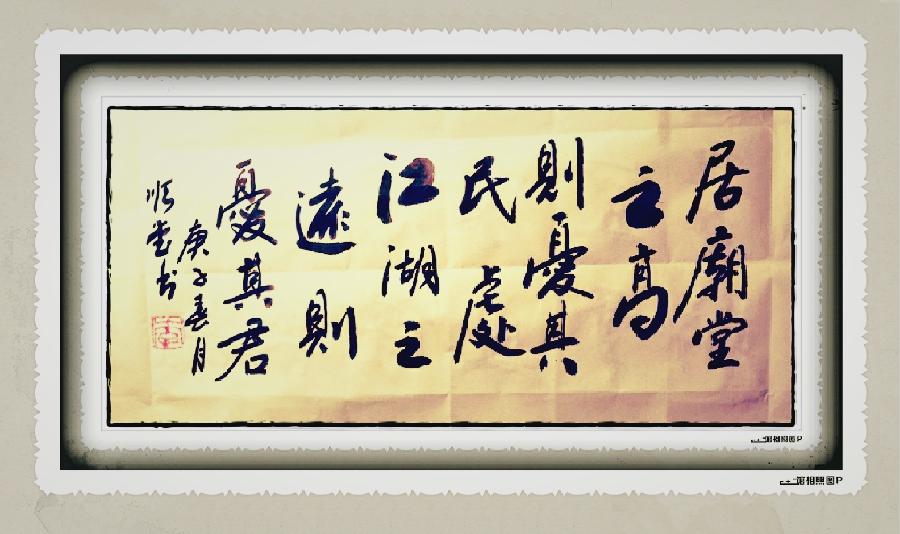 居廟堂
之高
則憂其
民處
江湖之
遠則
憂其君
庚子春月
順堂书